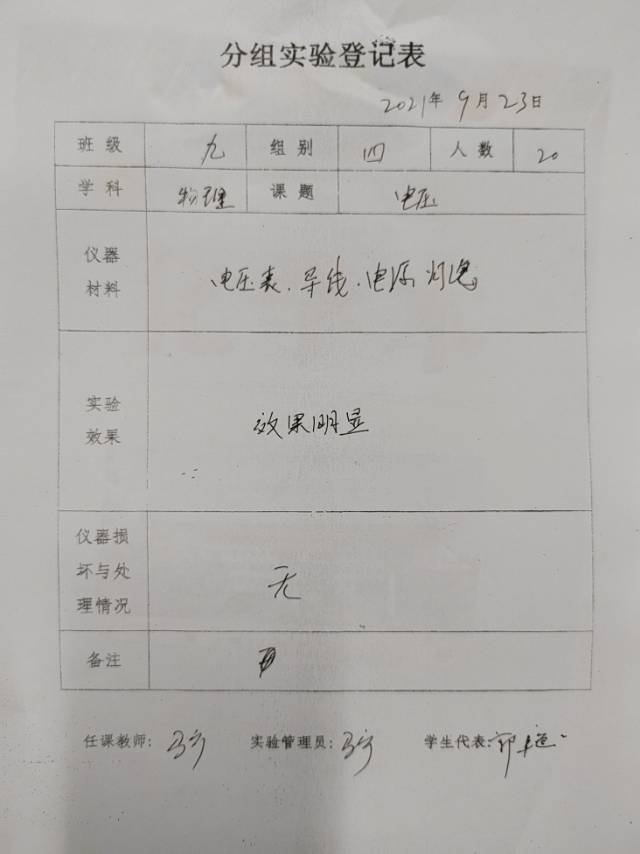 分组实验登记表
2021年 9月23日
班级 九 组别 四 人数 20
学科 物理 课题 电压
仪器
材料
电压表、导线、电源 灯泡
实验
效果
效果明显
仪器损
坏与处
理情况
无
备注
任课教师: 实验管理员: 学生代表: